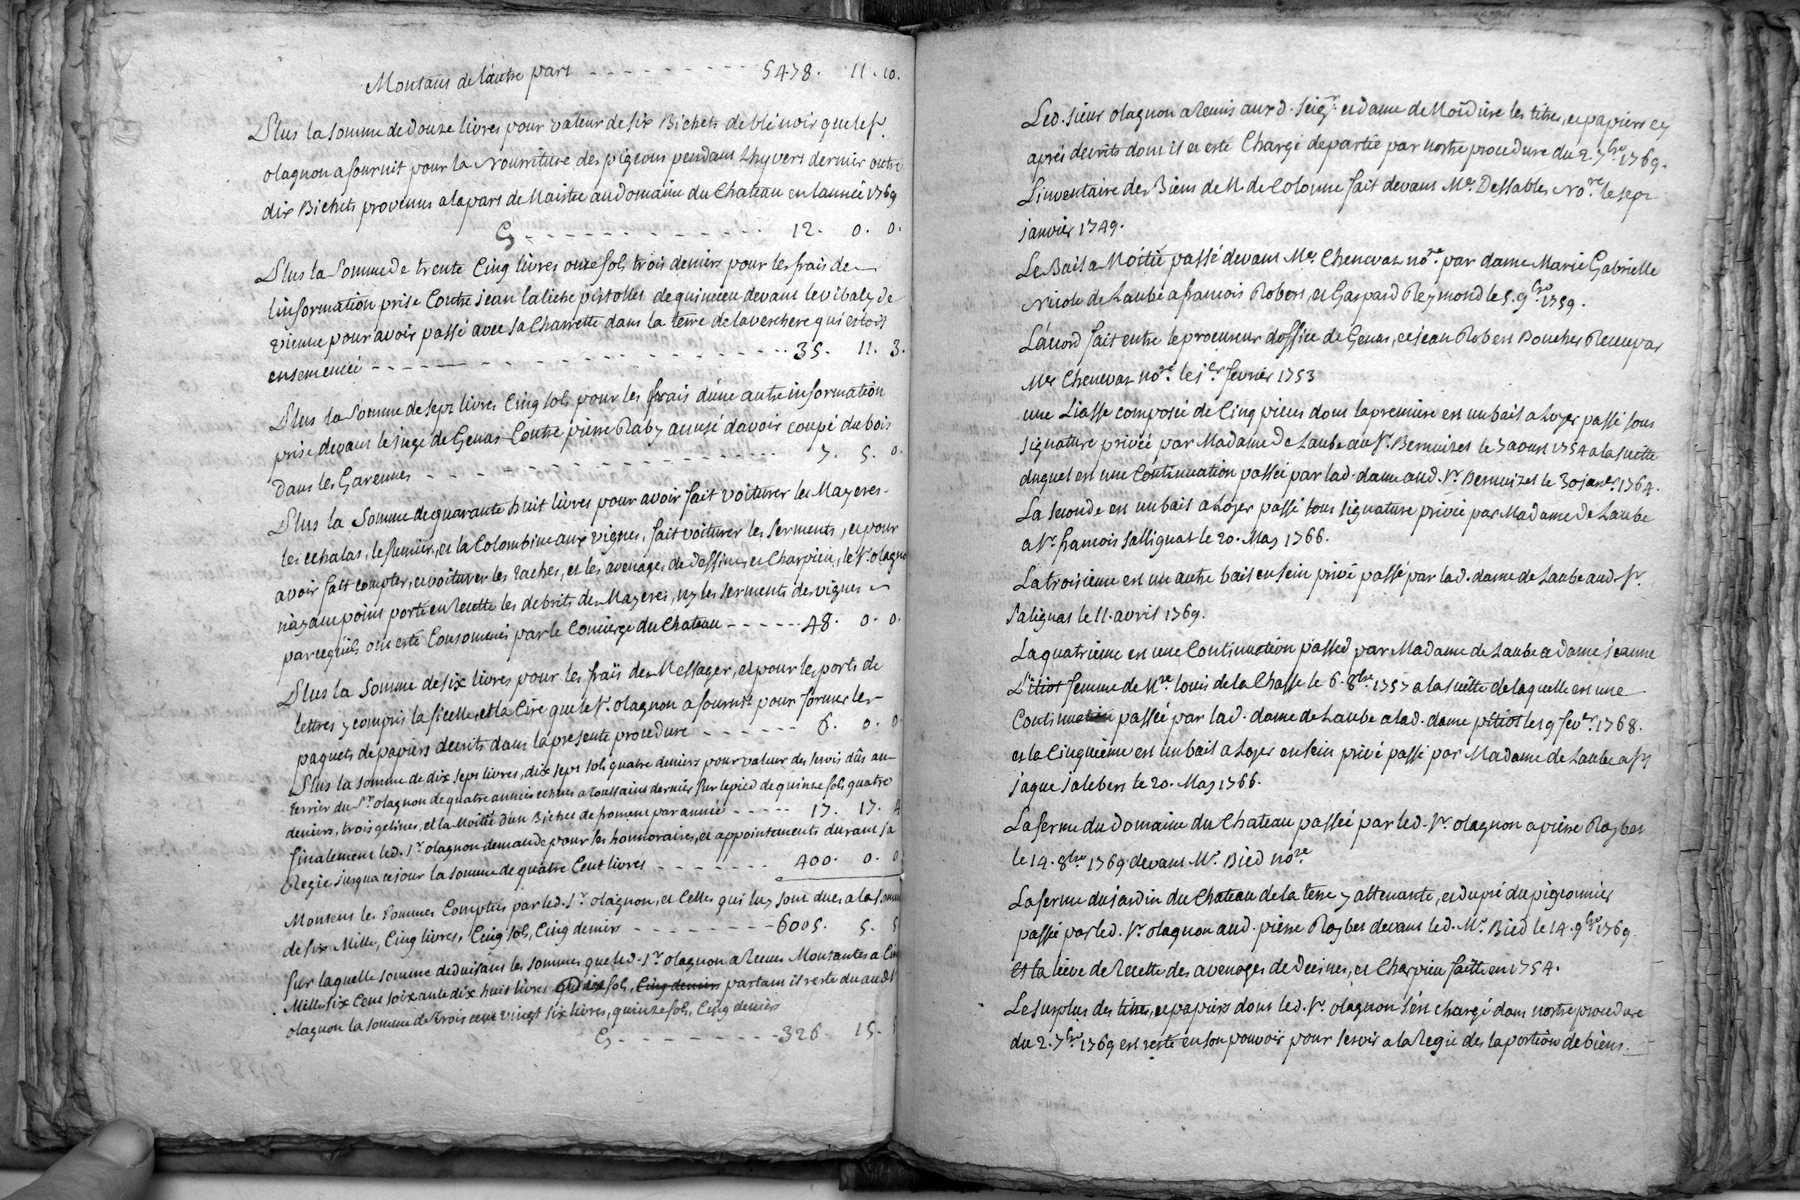 Montant de lautre part - - - - - - - - - 5478. 11. 10.
Plus la somme de douze livres pour valeur de six Bichets de blé noir que le Sr.
olagnon a fournit pour la Nourriture des pigeons pendant Lhyvert dernier outre
dix Bichets provenus a la part de Maistre au domaine du Chateau en lannée 1769
Cy - - - - - - - - - - - 12. 0. 0.
Plus la Somme de trente Cinq livres onze sols trois deniers pour les frais de
linformation prise Contre jean laliche pistollet de quincieu devant le vibaly de
vienne pour avoir passé avec sa Charrette dans la terre de laverchere qui estoit
ensemencée - - - - - - - - - - - - - - - 35. 11. 3.
Plus la Somme de sept livres Cinq sols pour les frais dune autre information
prise devant le juge de Genas Contre pierre Raby accusé davoir coupé du bois
dans les Garennes - - - - - - - - - - - - 7. 5. 0.
Plus la Somme de quarante huit livres pour avoir fait voiturer les Mayeres
les echalas, le fumier, et la Colombine aux vignes, fait voiturer les serments, et pour
avoir fait compter, et voiturer les raches, et les avenages de dessines, et Charpieu, le Sr. olagnon
nayant point porté en Recette les debrits des Mayeres, ny les serments des vignes
parcequils ont esté Consommés par le Concierge du Chateau - - - - - 48. 0. 0.
Plus la Somme de six livres pour les fraiï de Messager, et pour les ports de
lettres y compris la ficelle, et la Cire que le Sr. olagnon a fournit pour former les
paquets de papiers decrits dans la presente procedure - - - - - - 6. 0. 0
Plus la somme de dix sept livres, dix sept sols quatre deniers pour valeur des servis dûs au
terrier du Sr. olagnon de quatre années echues a toussaint dernier sur le pied de quinze sols quatre
deniers, trois gelines, et la Moitié dun Bichet de froment par année - - - - - 17. 17. 4
finalement led. Sr. olagnon demande pour ses honnoraires, et appointements durant sa
Regie jusqua ce jour la somme de quatre Cent livres - - - - - - 400. 0. 0
Montent les Sommes Comptées par led. Sr. olagnon, et Celles qui luy sont dues a la somme
de six Mille, Cinq livres, Cinq sols, Cinq deniers - - - - - - - - 6005. 5. 5
sur laquelle somme deduisant les sommes que led. Sr. olagnon a Reçues Montantes a Cinq
Mille six Cent soixante dix huit livres dix sols, Cinq deniers partant il reste du aud. Sr
olagnon la somme de trois cent vingt six livres, quinze sols, Cinq deniers
Cy - - - - - - - - - 326 15. 5
Led. sieur olagnon a remis aux d. seigr. et dame de Moidiere les titres, et papiers cy
aprés decrits dont il a esté Chargé de partie par nostre procedure du 2. 7bre 1769.
Linventaire des Biens de M. de Colonne fait devant Me. Dessables Nore. le sept
janvier 1749.
Le Bail a Moitié passé devant Me. Chenevaz nore. par dame Marie Gabrielle
Nicole de Laube a francois Robert, et Gaspard Reymond le 5. 9bre 1759.
Lacord fait entre le procureur doffice de Genas, et jean Robert Boucher Receu par
Me. Chenevaz nore. le 1er. fevrier 1753
une Liasse composée de Cinq pieces dont la premiere est un bail a Loyer passé sous
signature privée par Madame de Laube au Sr. Bernuizet le 7 aoust 1754 a la suitte
duquel est une Continuation passée par lad. dame aud. Sr. Bernuizet le 30 janr. 1764.
La seconde est un bail a Loyer passé sous signature privée par Madame de Laube
a Sr. francois Sallignat le 20. May 1766.
La troisieme est un autre bail en sein privé passé par lad. dame de Laube aud. Sr.
Salignat le 11. avril 1769.
La quatrieme est une Continuation passed par Madame de Laube a dame jeanne
Pitiot femme de Mre. louis de la Chasse le 6. 8bre. 1757 a la suitte de laquelle est une
Continuation passée par lad. dame de Laube a lad. dame pitiot le 19 fevr. 1768.
et la Cinquieme est un bail a Loyer en sein privé passé par Madame de Laube a Sr
jaque jalebert le 20. May 1766.
La ferme du Domaine du Chateau passée par led. Sr. olagnon a pierre Roybet
le 14. 8bre 1769 devant Me. Bied nore
La ferme du jardin du Chateau de la terre y attenante, et du pré du pigeonnier
passée par led. Sr. olagnon aud. pierre Roybet devant led. Me. Bied le 14. 9bre 1769.
Et la lieve de Recette des avenages de decines, et Charpieu faitte en 1754.
Le surplus des titres, et papiers dont led. Sr. olagnon sest chargé dans nostre procedure
du 2. 7bre. 1769 est resté en son pouvoir pour servir a la Regie de la portion de biens